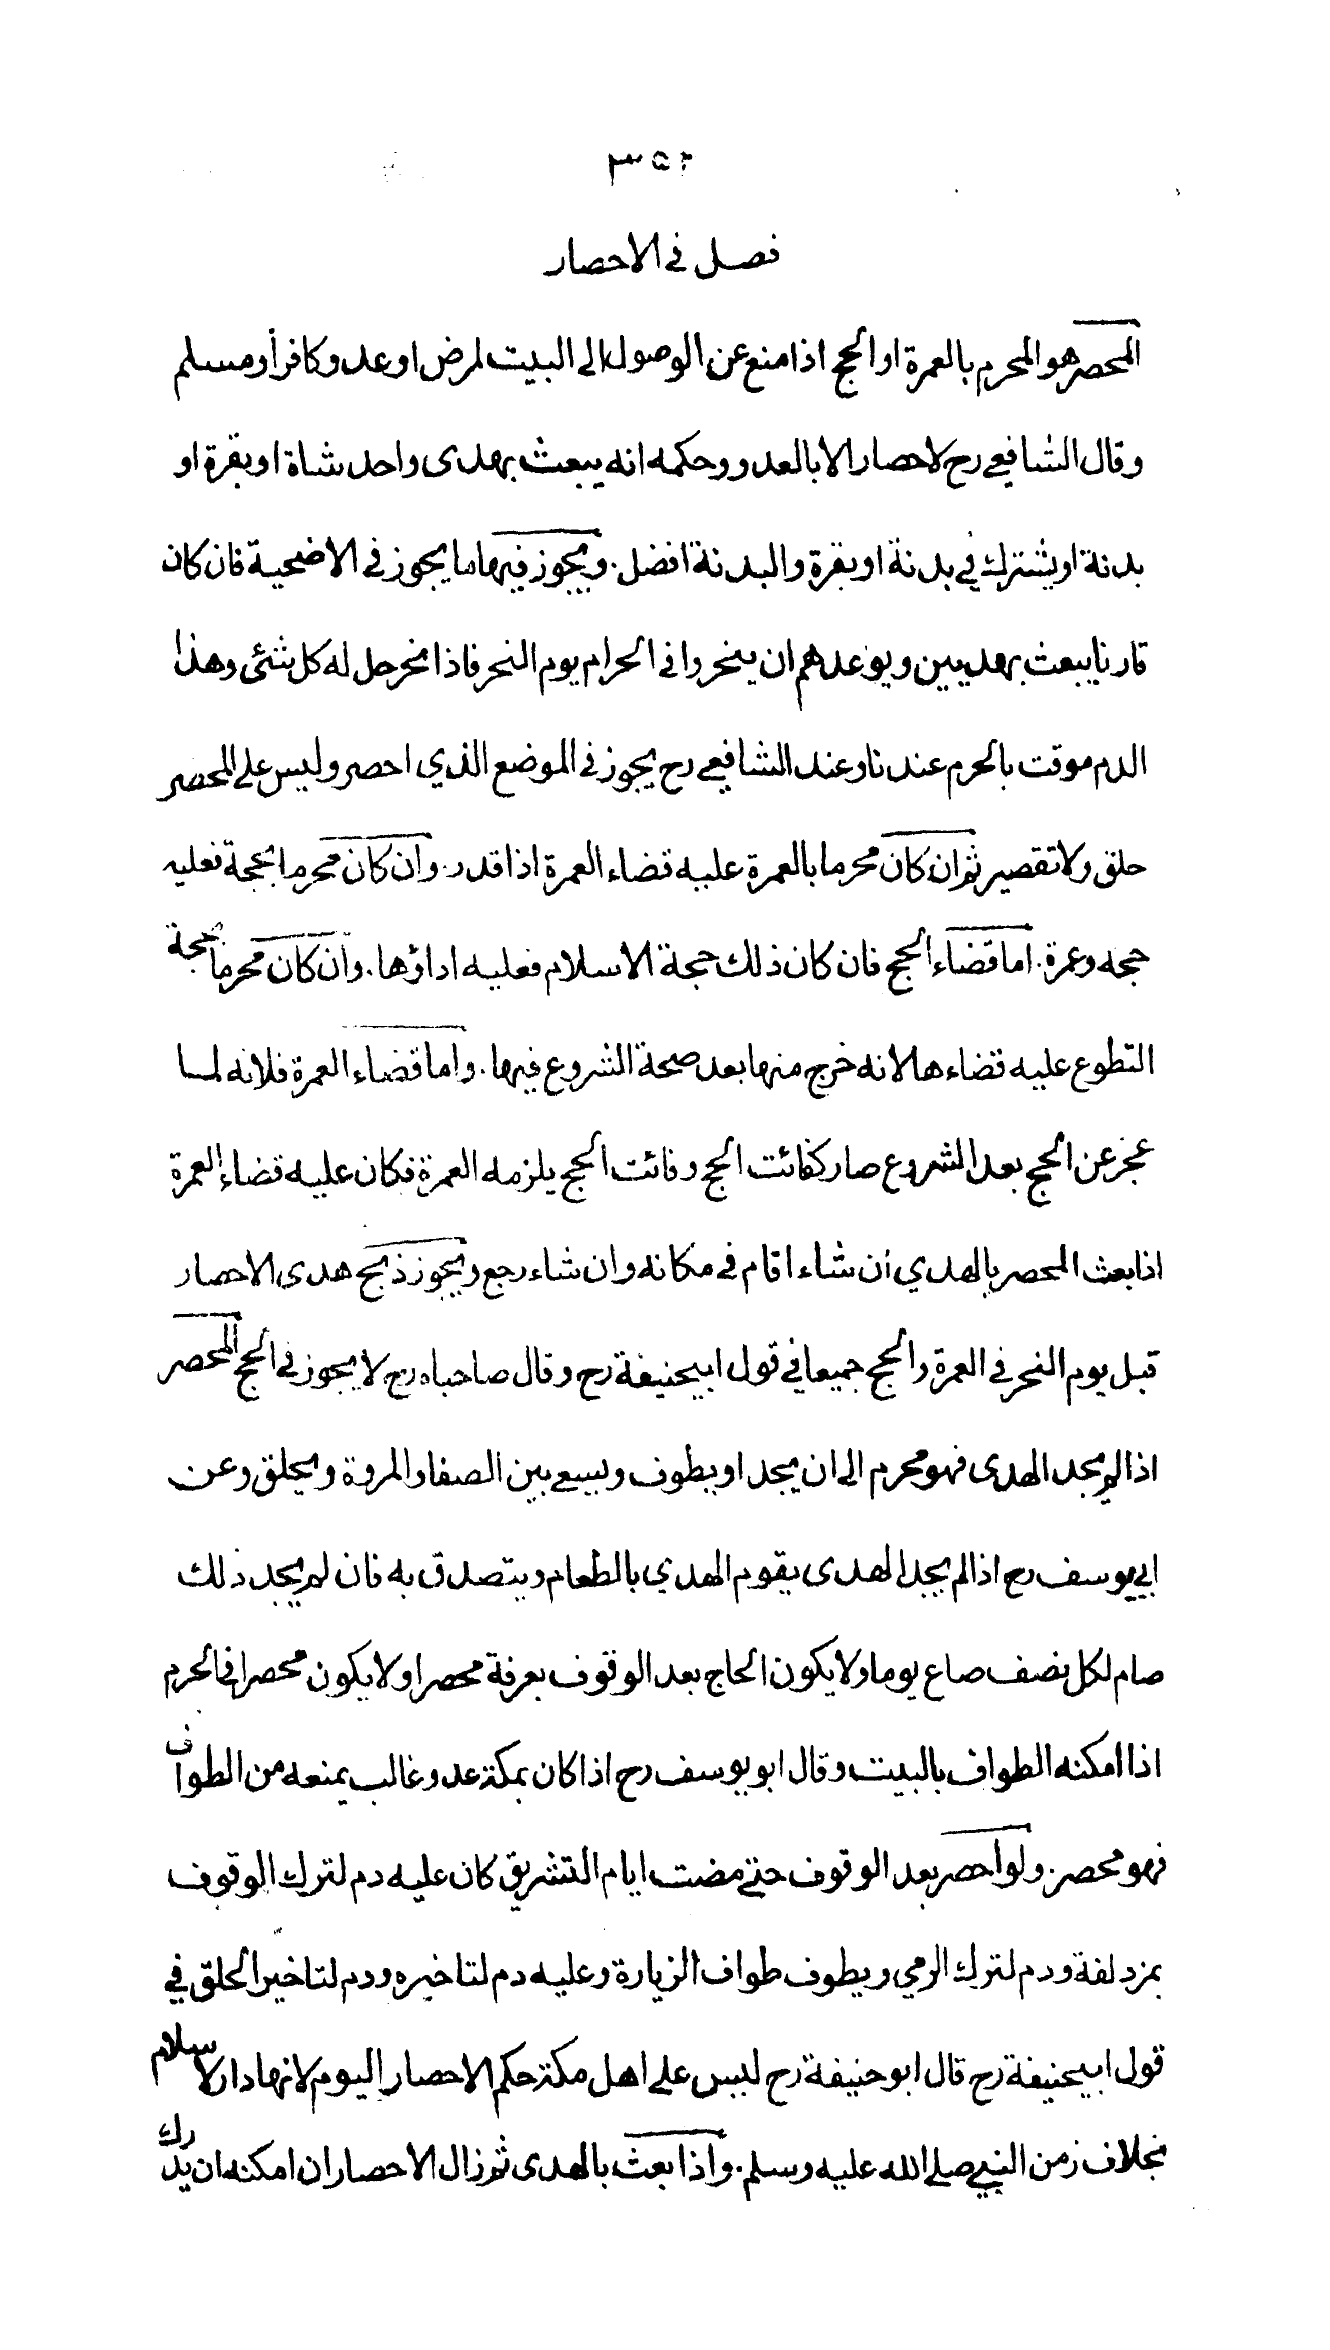 ٣٥٢
فصل في الاحصار
المحصر هو المحرم بالعمرة او الحج اذا منع عن الوصول الى البيت لمرض او عدو كافر أو مسلم
وقال الشافعي رح لا حصار الا بالعدو وحكمه انه يبعث بهدى واحد شاة او بقرة او
بدنة او يشترك في بدنة او بقرة والبدنة افضل. ويجوز فيها ما يجوز في الاضحية فان كان
قارنا يبعث بهديين ويوعدهم ان ينحروا في الحرام يوم النحر فاذا نحر حل له كل شئى وهذا
الدم موقت بالحرم عندنا وعند الشافعي رح يجوز في الموضع الذي احصر وليس على المحصر
حلق ولا تقصير ثم ان كان محرما بالعمرة عليه قضاء العمرة اذا قدر. وان كان محرما بحجة فعليه
حجه وعمرة. اما قضاء الحج فان كان ذلك حجة الاسلام فعليه اداؤها. وان كان محرما بحجة
التطوع عليه قضاءها لانه خرج منها بعد صحة الشروع فيها. واما قضاء العمرة فلانه لما
عجز عن الحج بعد الشروع صار كفائت الحج وفائت الحج يلزمه العمرة فكان عليه قضاء العمرة
اذا بعث المحصر بالهدي أن شاء اقام في مكانه وان شاء رجع ويجوز ذبح هدى الاحصار
قبل يوم النحر في العمرة والحج جميعا في قول ابيحنيفة رح وقال صاحباه رح لا يجوز في الحج المحصر
اذا لم يجد الهدى فهو محرم الى ان يجد او يطوف ويسعى بين الصفا والمروة ويحلق وعن
ابي يوسف رح اذا لم يجد الهدى يقوم الهدي بالطعام ويتصدق به فان لم يجد ذلك
صام لكل نصف صاع يوما ولا يكون الحاج بعد الوقوف بعرفة محصرا ولا يكون محصرا في الحرم
اذا امكنه الطواف بالبيت وقال ابو يوسف رح اذا كان بمكة عدو غالب يمنعه من الطواف
فهو محصر. ولو احصر بعد الوقوف حتى مضت ايام التشريق كان عليه دم لترك الوقوف
بمزدلفة ودم لترك الرمي ويطوف طواف الزيارة وعليه دم لتاخيره ودم لتاخير الحلق في
قول ابيحنيفة رح قال ابو حنيفة رح ليس على اهل مكة حكم الاحصار اليوم لانها دار الاسلام
بخلاف زمن النبي صلى الله عليه وسلم. واذا بعث بالهدى ثم زال الاحصار ان امكنه ان يدرك